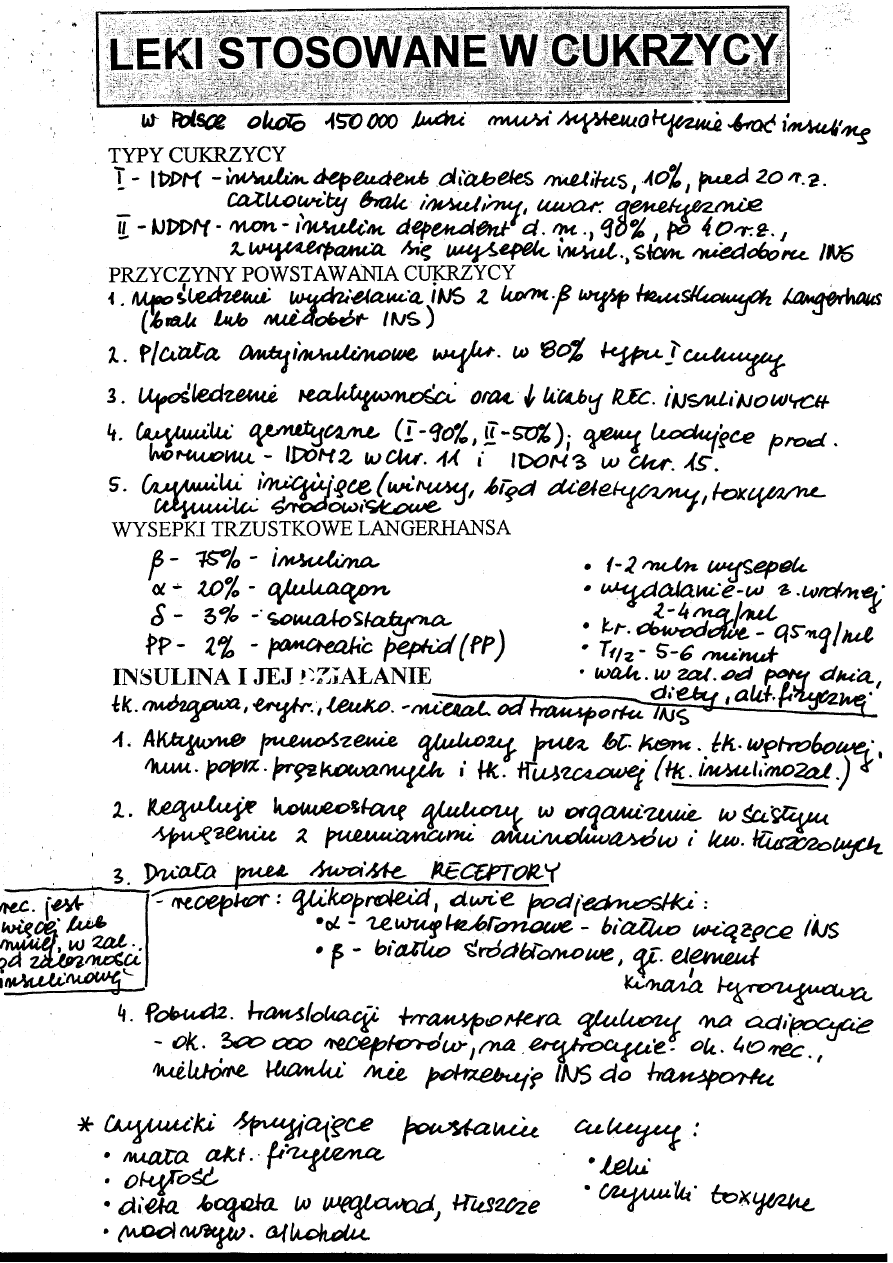 LEKI STOSOWANE W CUKRZYCY
w Polsce około 150 000 ludzi musi systematycznie brać insulinę
TYPY CUKRZYCY
I - IDDM - insulin dependent diabetes melitus, 10%, przed 20 r.ż.
całkowity brak insuliny, uwar. genetycznie
II - NDDM - non - insulin dependent d. m., 90%, po 40 r.ż.,
z wyczerpania się wysepek insul., stan niedoboru INS
PRZYCZYNY POWSTAWANIA CUKRZYCY
1. Upośledzenie wydzielania INS z kom. β wysp trzustkowych Langerhans
(brak lub niedobór INS)
2. P/ciała antyinsulinowe wykr. w 80% typu I cukrzycy
3. Upośledzenie reaktywności oraz ↓ liczby REC. INSULINOWYCH
4. Czynniki genetyczne (I-90%, II-50%); geny kodujące prod.
hormonu - IDDM2 w chr. 11 i IDDM3 w chr. 15.
5. Czynniki inicjujące (wirusy, błąd dietetyczny, toxyczne
czynniki środowiskowe
WYSEPKI TRZUSTKOWE LANGERHANSA
β - 75% - insulina
α - 20% - glukagon
δ - 3% - somatostatyna
PP - 2% - pancreatic peptid (PP)
• 1-2 mln wysepek
• wydalanie - w ż. wrotnej
2-4 ng/ml
• kr. obwodowe - 0,5 ng/ml
• T1/2 - 5-6 minut
• wah. w zal. od pory dnia,
diety, akt. fizycznej
INSULINA I JEJ DZIAŁANIE
tk. mózgowa, erytr., leuko. - niezal. od transportu INS
1. Aktywne przenoszenie glukozy przez bł. kom. tk. wątrobowej,
mm. poprz. prążkowanych i tk. tłuszczowej (tk. insulinozal.)
2. Reguluje homeostazę glukozy w organizmie w ścisłym
sprzężeniu z przemianami aminokwasów i kw. tłuszczowych
3. Działa przez swoiste RECEPTORY
- receptor: glikoproteid, dwie podjednostki:
• α - zewnątrzbłonowe - białko wiążące INS
• β - białko śródbłonowe, gł. element
kinaza tyrozynowa
rec. jest
więcej lub
mniej, w zal.
od zależności
insulinowej
4. Pobudz. translokacji transportera glukozy na adipocycie
- ok. 300 000 receptorów, na erytrocycie: ok. 40 rec.,
niektóre tkanki nie potrzebują INS do transportu
* Czynniki sprzyjające powstaniu cukrzycy:
• mała akt. fizyczna
• otyłość
• dieta bogata w węglowod, tłuszcze
• nadużyw. alkoholu
• leki
• czynniki toxyczne